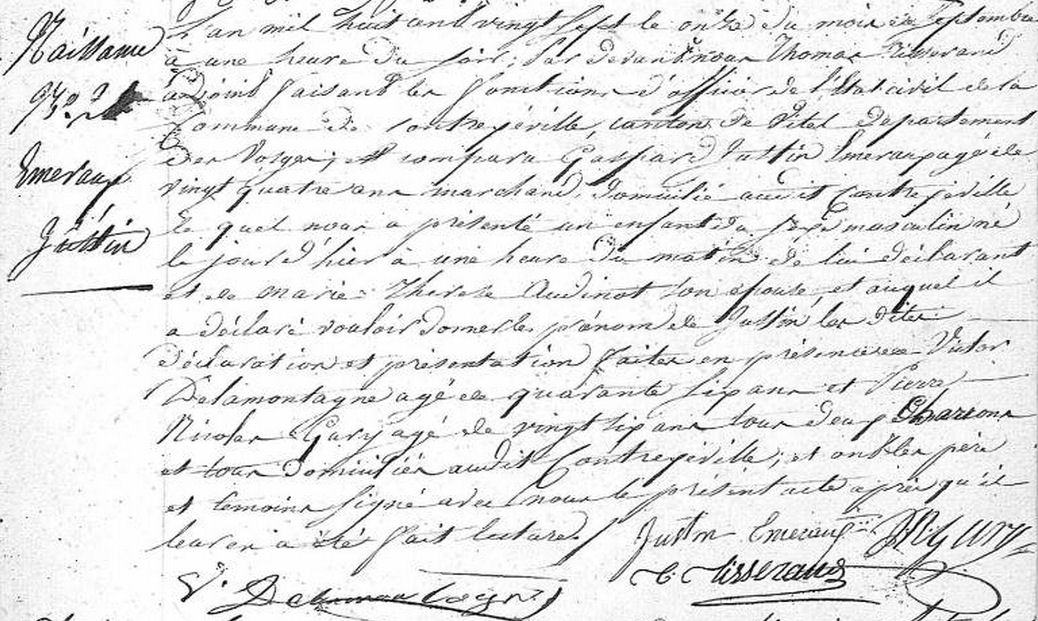 Naissance
N°. 21
Emeraux
Justin
L'an mil huit cent vingt sept le onze du mois de Septembre
à une heure du soir, Par devant nous Thomas Tisserand
adjoint faisant les fonctions d'officier de l'Etat civil de la
Commune de Contrexéville, canton de Vitel département
des Vosges, est comparu Gaspard Justin Emeraux agé de
vingt quatre ans marchand, domicilié audit Contrexéville
le quel nous a présenté un enfant du sexe masculin né
le jour d'hier à une heure du matin de lui déclarant
et de Marie Therese Audinot son épouse, et auquel il
a déclaré vouloir donner les prénom de Justin les dites
déclaration et présentation faites en présence de Victor
Delamontagne agé de quarante six ans et Pierre
Nicolas Gury agé de vingt six ans tous deux Charons
et tous domiciliés audit Contrexéville, et ont les père
et temoins signé avec nous le présent acte après qu'il
leur en a été fait lecture
Justin Emeraux PN Gury
V. Delamontagne T. Tisserand